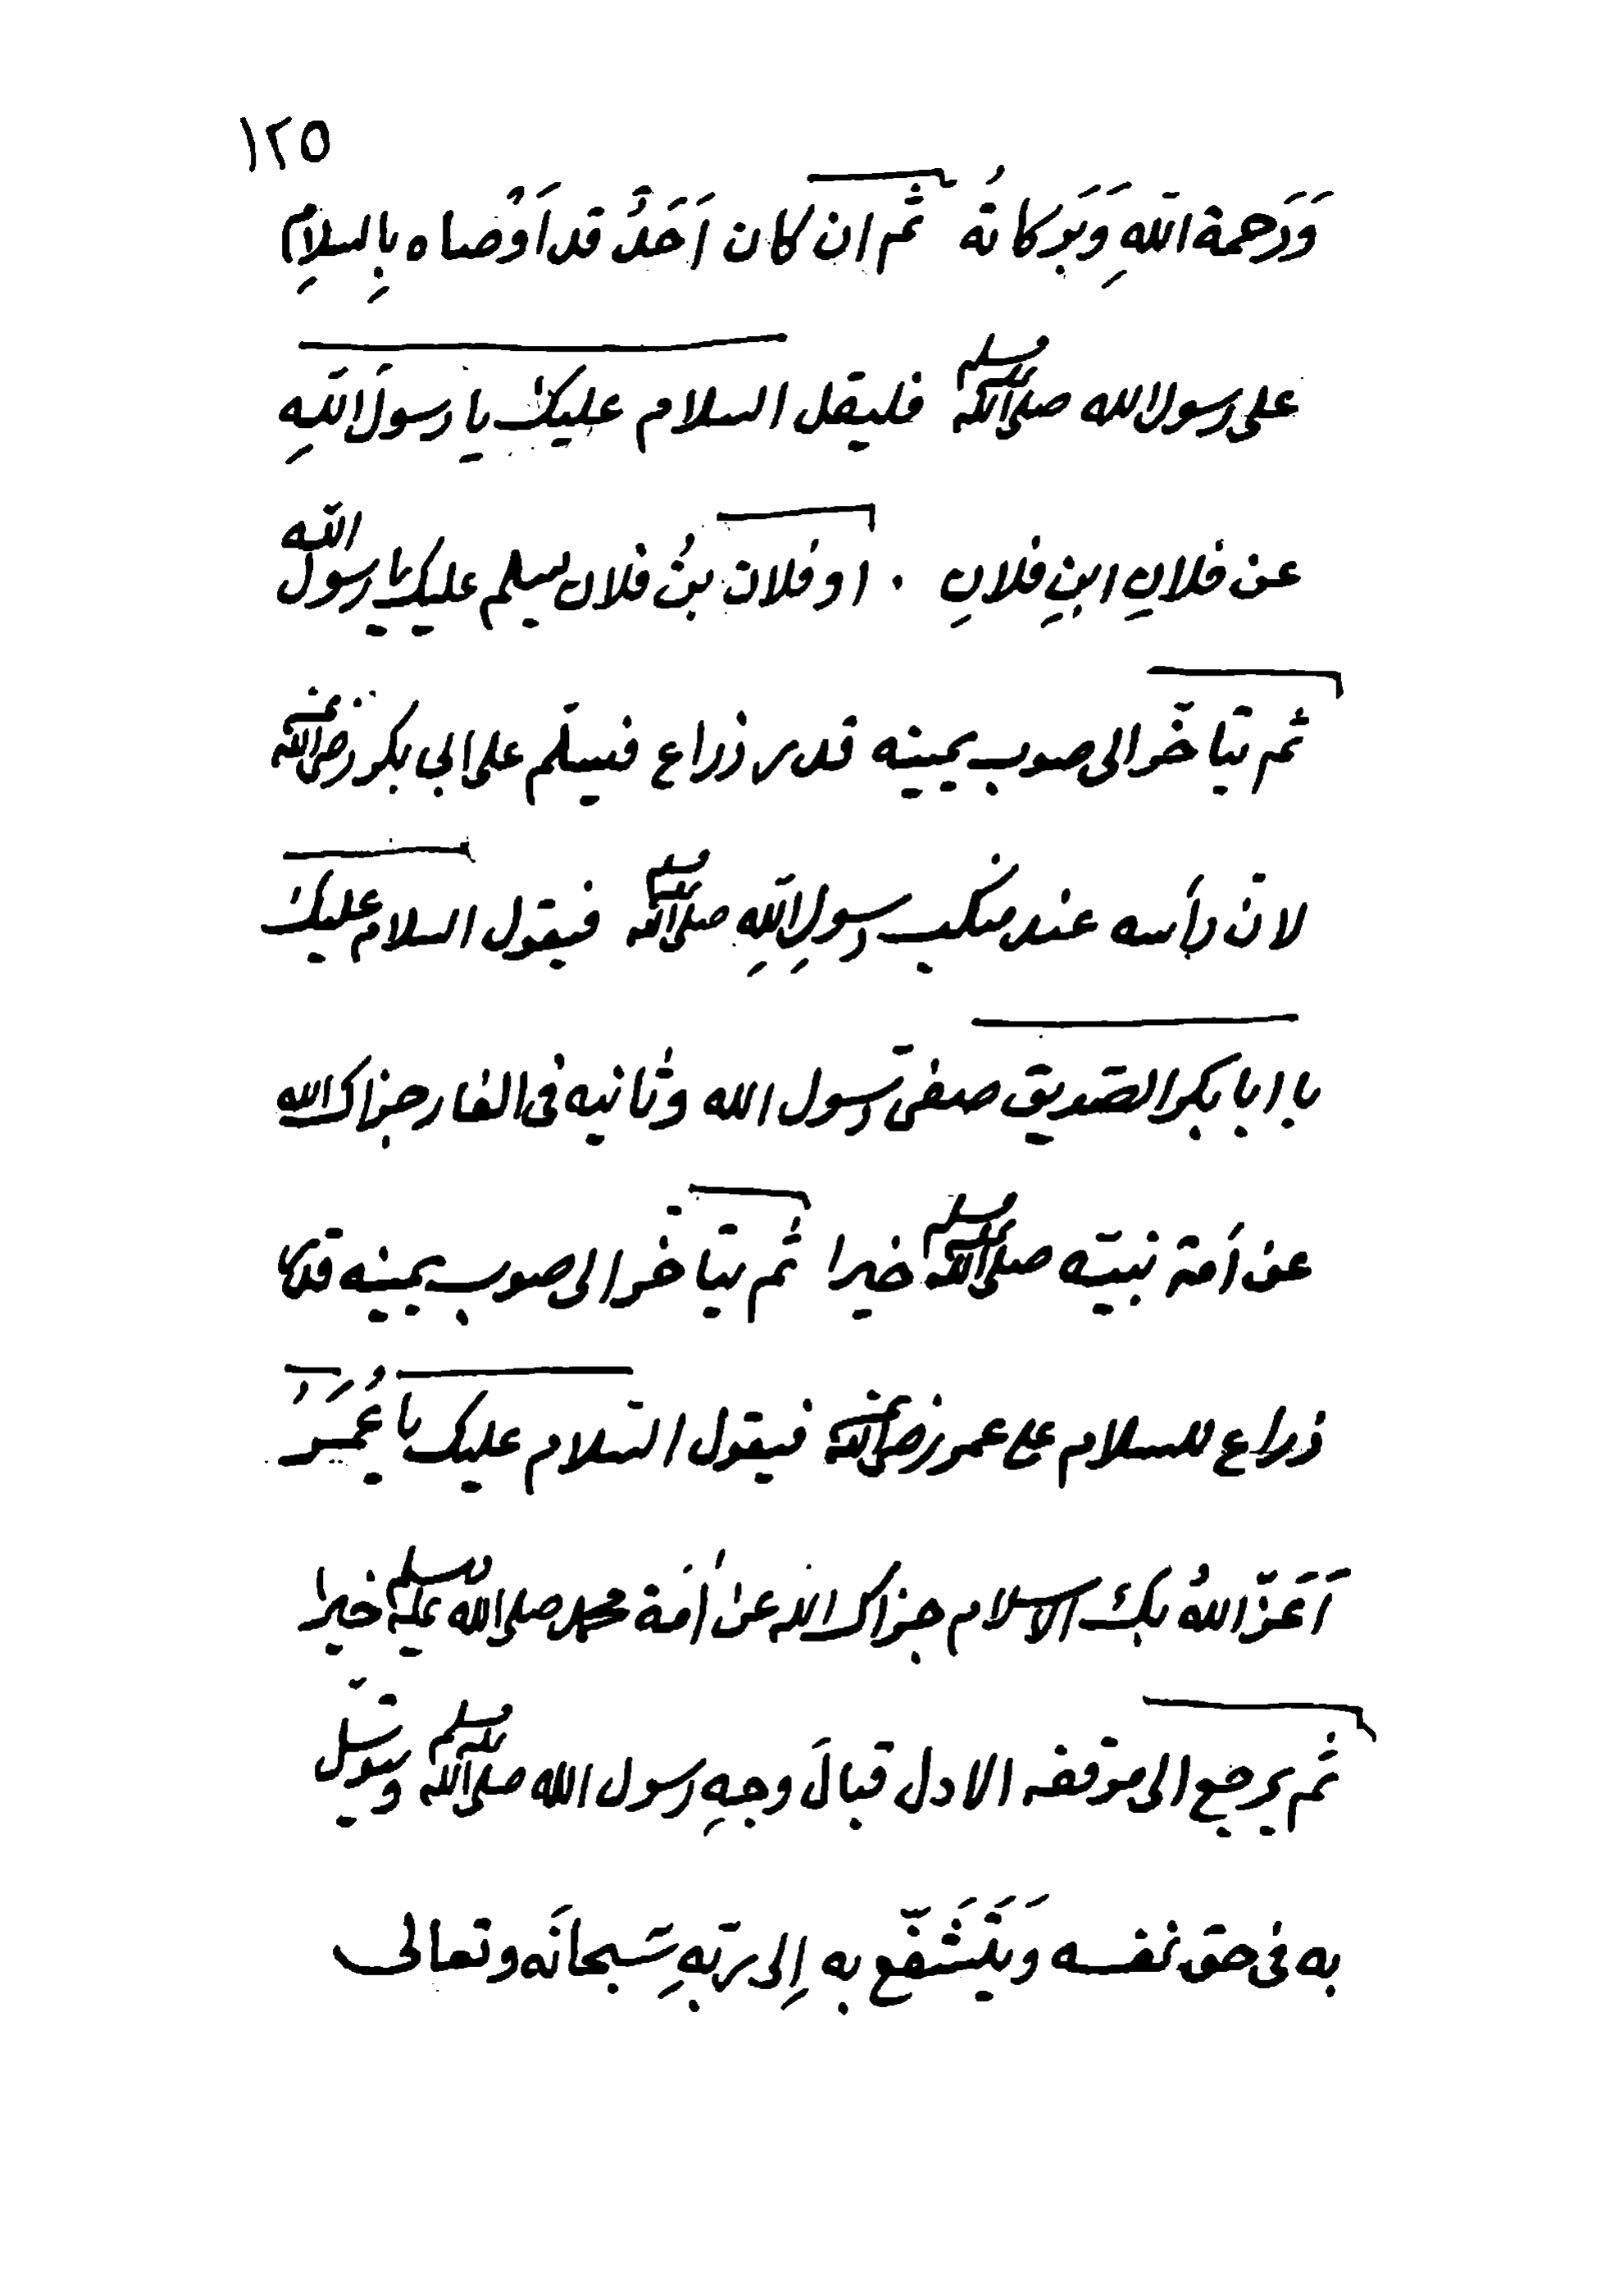 ١٢٥
وَرَحمة اللهِ وَبَركاتهُ ثم ان كان اَحَدٌ قد اَوْصاه بِالسلامِ
على رسول الله صلى الله عليه وسلم فليقل السلام عليكَ يا رسولَ اللهِ
عن فلانِ ابنِ فلانِ . او فلان بنُ فلان يسلم عليك يا رسول الله
ثم يتأخّر الى صوب يمينه قدر ذراع فيسلّم على ابي بكر رضي الله عنه
لان رأسه عند منكب رسولِ اللهِ صلى الله عليه وسلم فيقول السلام عليكَ
يا ابا بكر الصّديق صفىّ رسول الله وثانيه في الغار جزاك الله
عن اُمة نبيّه صلى الله عليه وسلم خيرا ثم يتأخّر الى صوب يمينه قدر
ذراع للسلام على عمر رضي الله عنه فيقول السّلام عليك يا عُمَرُ
اَعَزّ اللهُ بكَ الاسلام جزاك الله عن اُمَة محمد صلى الله عليه وسلم خيرا
ثم يرجع الى موقفه الاول قبالَ وجهِ رسول الله صلى الله عليه وسلم ويتوسّل
به في حق نفسه وَيَتَشَفّع به اِلى ربّهِ سبحانَه وتعالى